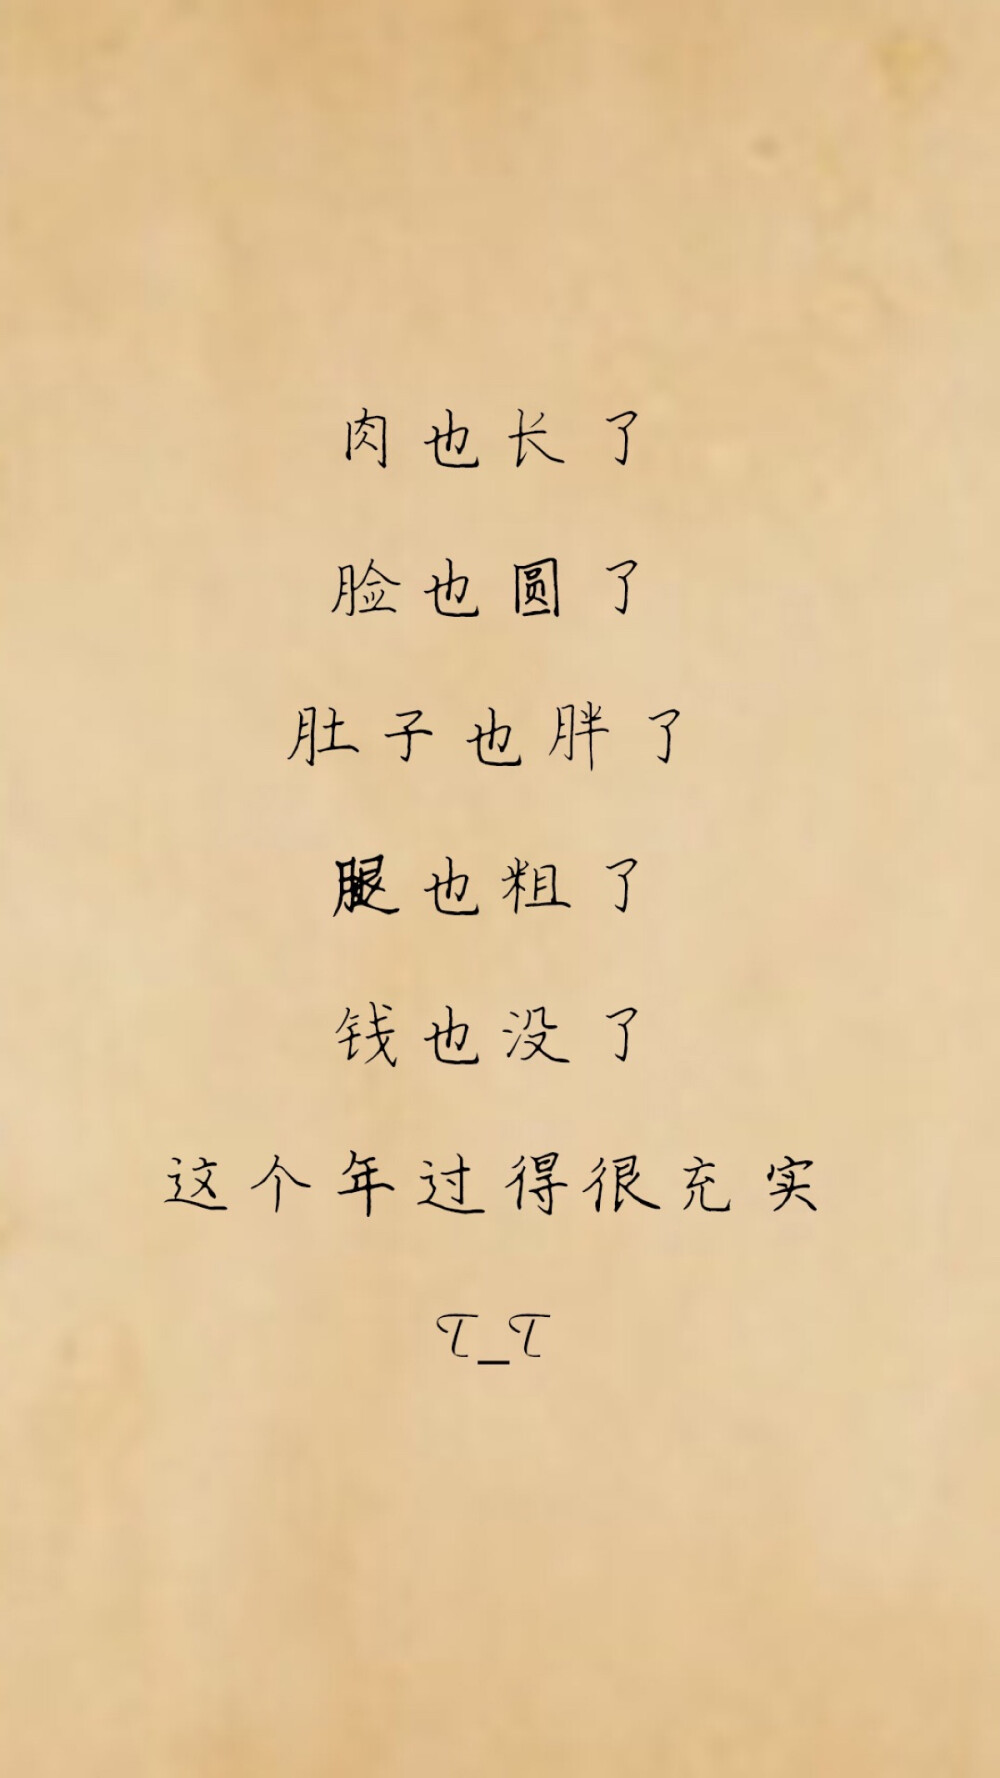 肉也长了
脸也圆了
肚子也胖了
腿也粗了
钱也没了
这个年过得很充实
T_T